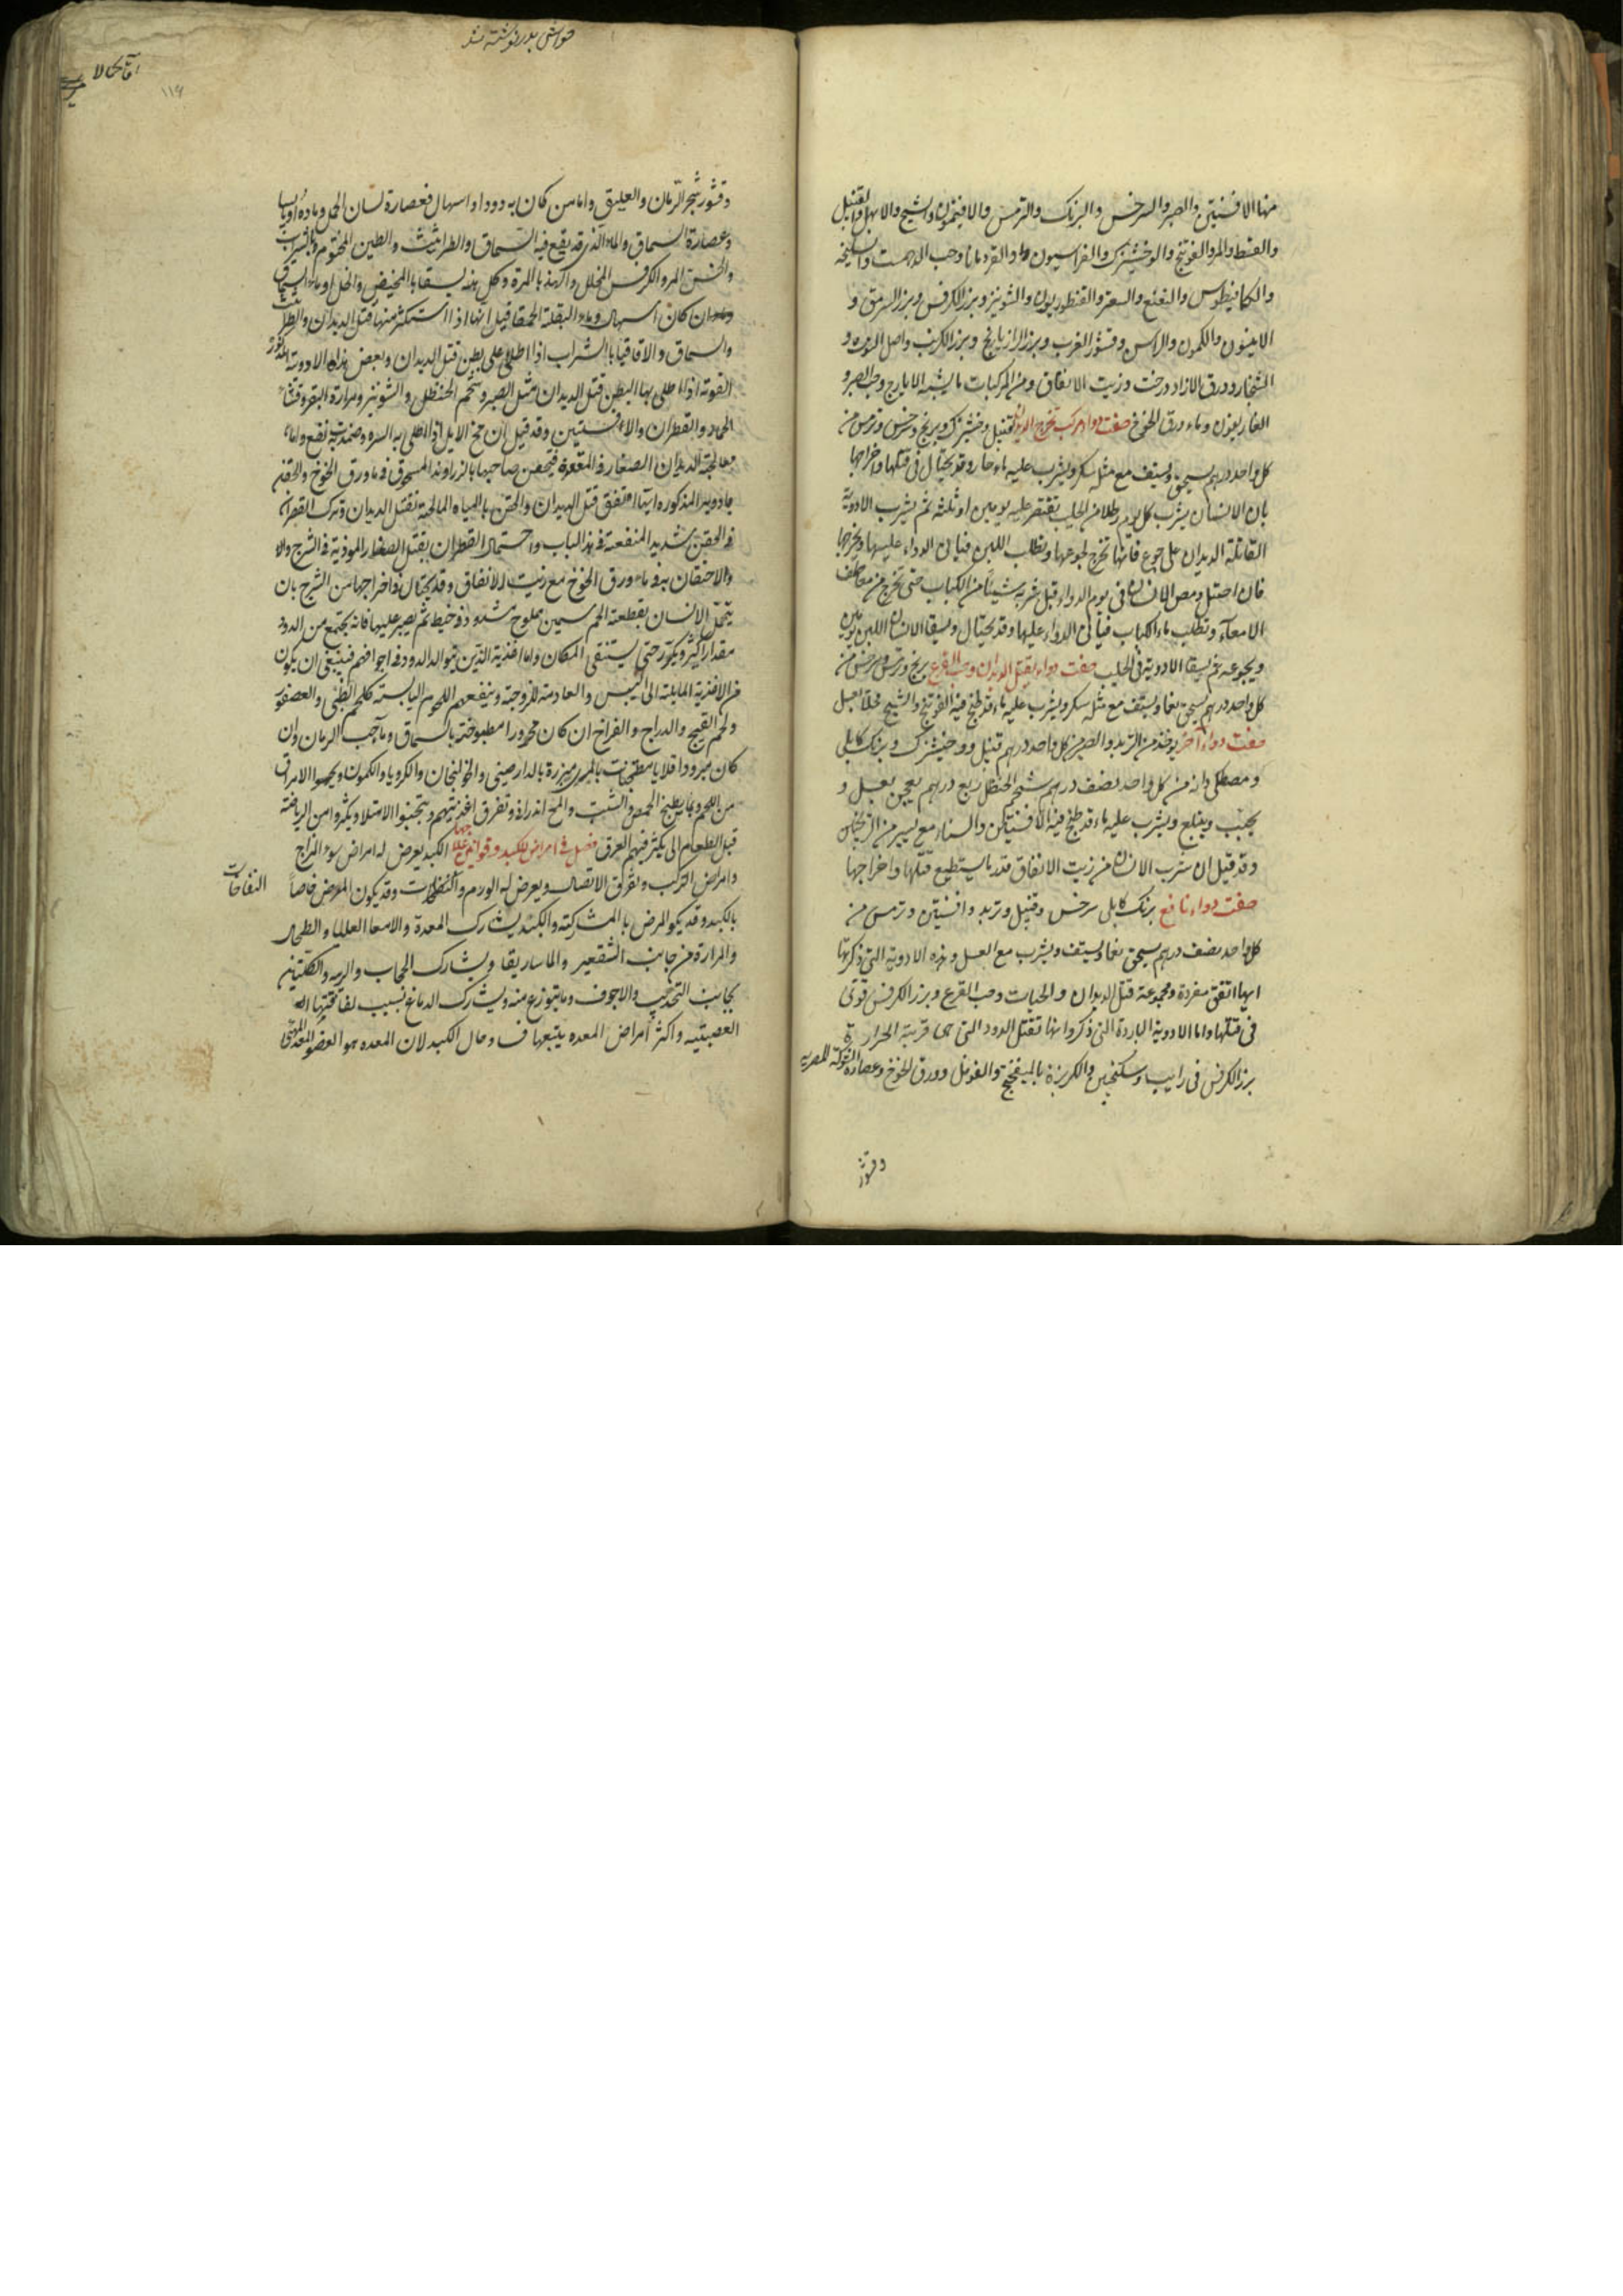 منها الافسنتين والصبر والسرخس والبرنك والترمس والافتيمون والشيح والابهل والقنبيل
والقسط والمر والفوتنج والوخشيزك والفراسيون والقردمانا وحب الدهمست والسليخه
والكمافيطوس والنعنع والسعتر والقنطوريون والشونيز وبزر الكرفس وبزر السرمق و
الانيسون والكمون والراسن وقشور الغرب وبزر الرازيانج وبزر الكرنب واصل التوت و
الشنجار وورق الازاد درخت وزيت الانفاق ومن المركبات ما يشبه الايارج وحب الصبر و
الغاريقون وماء ورق الخوخ صفت دواء مركب تخرج الديدان قنبيل وخشيزك وبرنج وسرخس وترمس من
كل واحد درهم يسحق ويستف مع مثله سكر ويشرب عليه ماء حار وقد يحتال فى قتلها واخراجها
بان الانسان يشرب كل يوم رطلا من الحليب يقتصر عليه يومين او ثلثه ثم يشرب الادوية
القاتلة الديدان على جوع فانها تخرج لجوعها وتطلب اللبن فياتى الدواء عليها ويخرجها
فان احتيل ومص الانسان فى يوم الدواء قبل شربه شيئا من الكباب حتى تخرج من معاطف
الامعاء وتطلب ماء الكباب فياتى الدواء عليها وقد يحتال ويسقا الانسان اللبن يومين
ويجوعه ثم يسقا الادوية فى الحليب صفت دواء يقتل الديدان وحب القرع برنج وترمس وسرخس من
كل واحد درهم يسحق نعما ويستف مع مثله سكر ويشرب عليه ماء قد طبخ فيه الفوتنج والشيح محلا بعسل
صفت دواء اخر يوخذ من التربد والصبر من كل واحد درهم قنبيل ووخشيزك وبرنك كابلى
ومصطكى وانه من كل واحد نصف درهم شحم الحنظل ربع درهم يعجن بعسل و
يحبب ويبلع ويشرب عليه ماء قد طبخ فيه الافسنتين والسناء مع يسير من الترنجبين
وقد قيل ان شرب الانسان من زيت الانفاق قدر ما يستطيع قتلها واخراجها
صفت دواء نافع برنك كابلى سرخس وقنبيل وتربد وافسنتين وترمس من
كل واحد نصف درهم يسحق نعما ويستف ويشرب مع العسل وهذه الادوية التى ذكرتها
ايها اتفق مفردة ومجموعة قتل الديدان والحيات وحب القرع وبزر الكرفس قوى
فى قتلها واما الادوية الباردة التى ذكروا انها تقتل الدود التى هى قريبة الحرارة
بزر الكرفس فى رايب وسكنجبين والكزبرة بالميفختج والفوفل وورق الخوخ وعصارة الشوكة المصريه
وقشور
حواشى بدر نوشته شد
١١٩
وقشور شجر الرمان والعليق واما من كان به دود او اسهال فعصارة لسان الحمل وماؤه او يابسا
وعصارة السماق والماء الذى قد يقع فيه السماق او الطراثيث والطين المختوم بالشراب
والخس المر والكرفس المخلل والهندبا المرة وكل هذه يسقا بالمخيض والخل او ماء السماق
وان كان اسهال وماء البقلة الحمقا قيل انها اذا استكثر منها قتل الديدان والطراثيث
والسماق والاقاقيا بالشراب اذا طلى على بطن قتل الديدان وبعض هذه الادوية المذكور
القوية اذا ما طلى بها البطن قتل الديدان مثل الصبر وشحم الحنظل والشونيز ومرارة البقر وقثاء
الحمار والقطران والافسنتين وقد قيل ان مخ الايل اذا طلى به السره وضمدت به نفع واما
معالجة الديدان الصغار فى المقعدة فيحقن صاحبها بالزراوند المسحوق فى ماء ورق الخوخ والحقنه
بادوية المذكوره ايها اتفق قتل الديدان والحقن بالمياه المالحة تقتل الديدان وترك القطران
فى الحقن شديد المنفعة فى هذا الباب واحتمال القطران يقتل الصغار الموذية فى الشرج والا
والاحتقان به وماء ورق الخوخ مع زيت الانفاق وقد يحتال فى اخراجها من الشرج بان
يتحمل الانسان بقطعة لحم سمين مملوح مشدوذ فى خيط ثم يصبر عليها فانه يجتمع من الدود
مقدارا كثير ويكرر حتى يستنقى المكان واما اغذية الذين تتوالد الدود فى اجوافهم فينبغى ان يكون
من الاغذية المايلة الى اليبس والعادمة للزوجة وينفعهم اللحوم اليابسة كلحم الظبى والعصفور
ولحم القبج والدراج والفراخ ان كان محرورا مطبوخة بالسماق وماء حب الرمان وان
كان مبرودا قلايا مطجنات بالمرى مبزرة بالدارصينى والخولنجان والكرويا والكمون ويحسوا الامراق
من اللحم وماء يطبخ الحمص والشبت والملح اندرانى وتفرق اغذيتهم ويتجنبوا الامتلا ويكثروا من الرياضة
قبل الطعام الى يكثر فيهم العرق فصل فى امراض الكبد وقوانين علاجها الكبد يعرض له امراض سوء المزاج
وامراض التركب وتفرق الاتصال ويعرض له الورم والنفاخات وقد يكون المرض خاصا
النفاخات
بالكبد وقد يكون المرض بالمشاركته والكبد يشارك المعدة والامعا العليا والطحال
والمرارة من جانب التقعير والماساريقا ويشارك الحجاب والريه والكليتين
بجانب التحديب والاجوف وما يتوزع منه ويشارك الدماغ بسبب لفافتها
العصبتيه واكثر امراض المعده يتبعها فساد حال الكبد لان المعده هو العضو المهيى